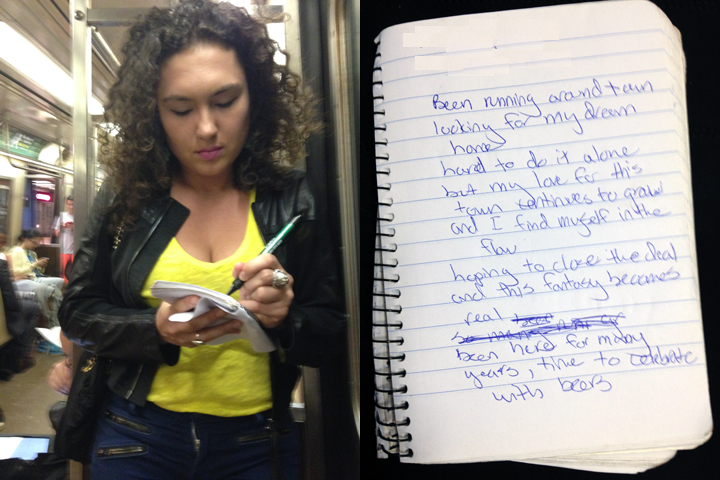 Been running around town
looking for my dream
home
hard to do it alone
but my love for this
town continues to grow
and I find myself in the
flow
hoping to close the deal
and this fantasy becomes
real
been here for many
years, time to celebrate
with beers